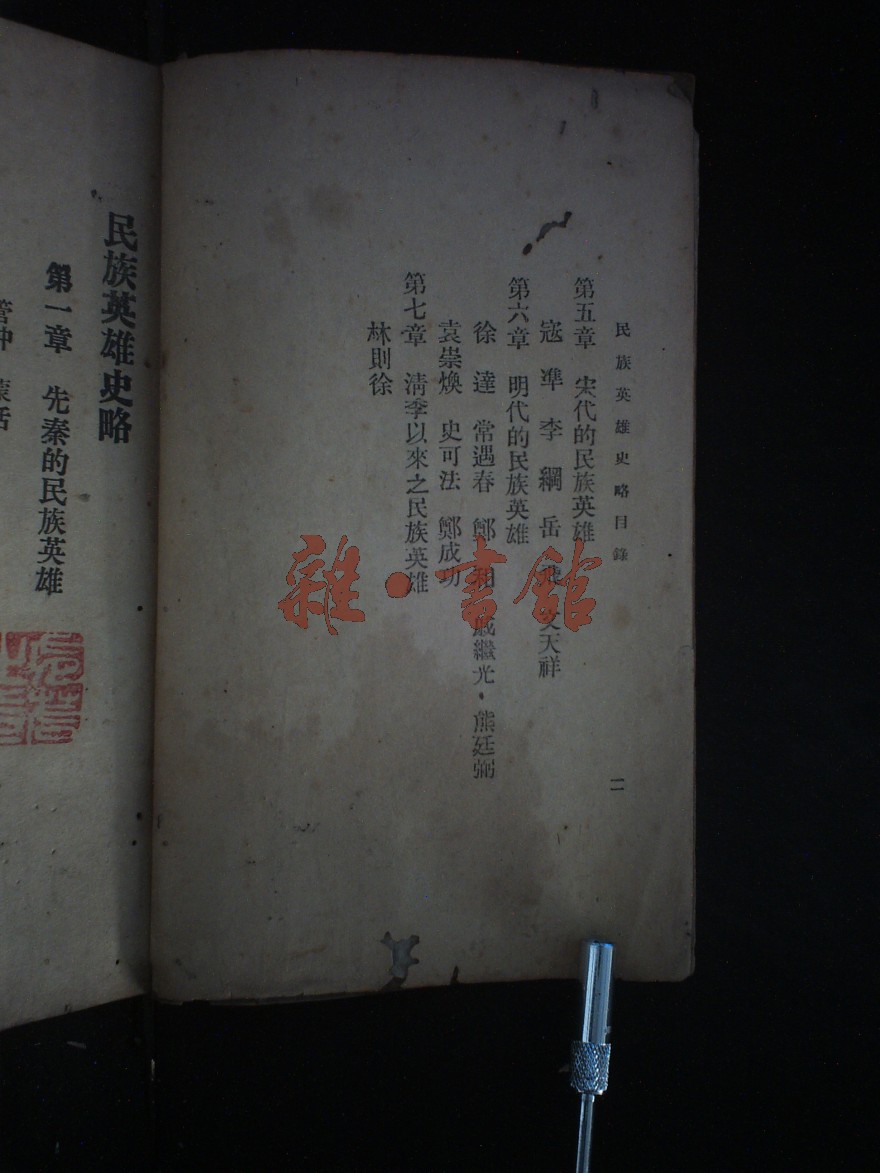 民族英雄史略目錄
二
第五章　宋代的民族英雄
寇準　李綱　岳飛　文天祥
第六章　明代的民族英雄
徐達　常遇春　鄭和　戚繼光・熊廷弼
袁崇煥　史可法　鄭成功
第七章　淸季以來之民族英雄
林則徐
民族英雄史略
第一章　先秦的民族英雄
管仲　蒙恬
雜・書館